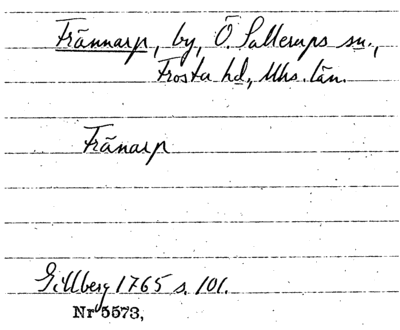 Frännarp, by, Ö. Sallerups sn.,
Frosta hd., Mhs. län.
Fränarp
Gillberg 1765 s. 101.
Nr 5573,